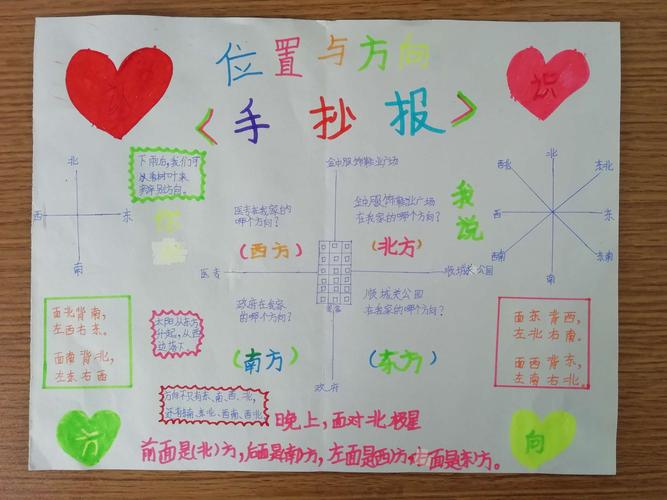 位置与方向
《手抄报》
识
北
西
东
南
下雨后,我们可
以看树叶来
辨别方向。
你
金巾服饰鞋业广场
医专在我家的
哪个方向?
(西方)
金巾服饰鞋业广场
在我家的哪个方向?
(北方)
我说
北
西北
东北
西
东
西南
东南
南
医专
我家
顺城关公园
政府在我家
的哪个方向?
(南方)
顺城关公园
在我家的哪个方向?
(东方)
政府
面北背南,
左西右东。
面南背北,
左东右西
太阳从东方
升起,从西
边落下
面东背西,
左北右南。
面西背东,
左南右北。
方向不只有东、南、西、北,
还有东南、东北、西南、西北
晚上,面对北极星
前面是(北)方,后面是(南)方,左面是(西)方,右面是(东)方。
方
向